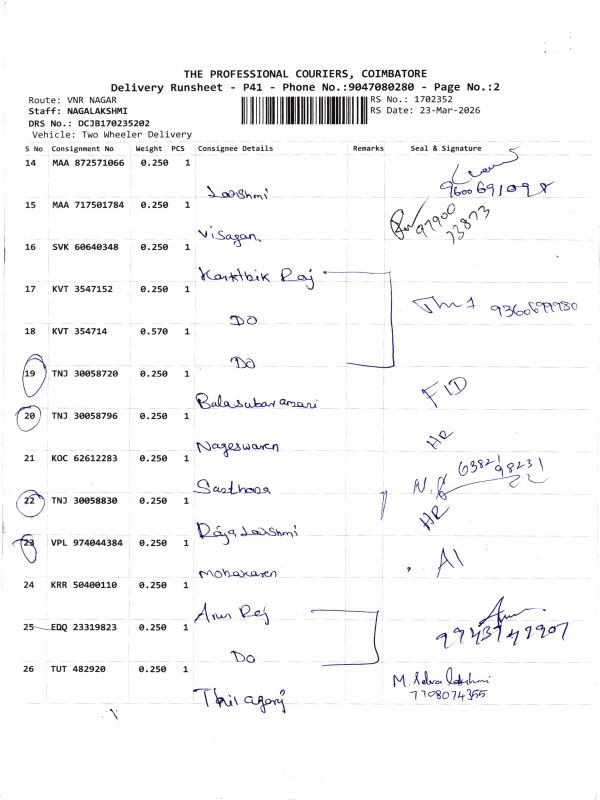 THE PROFESSIONAL COURIERS, COIMBATORE
Delivery Runsheet - P41 - Phone No.:9047080280 - Page No.:2
Route: VNR NAGAR
RS No.: 1702352
Staff: NAGALAKSHMI
RS Date: 23-Mar-2026
DRS No.: DCJB170235202
Vehicle: Two Wheeler Delivery
S No Consignment No Weight PCS Consignee Details Remarks Seal & Signature
14 MAA 872571066 0.250 1
Lakshmi 9600691098
15 MAA 717501784 0.250 1
Visagan. 97900 73873
16 SVK 60640348 0.250 1
Karkthik Raj
17 KVT 3547152 0.250 1
DO
18 KVT 354714 0.570 1
DO
19 TNJ 30058720 0.250 1
Balasubaramani
20 TNJ 30058796 0.250 1
Nageswaren HR
21 KOC 62612283 0.250 1
22 TNJ 30058830 0.250 1
Raja Lakshmi HR
23 VPL 974044384 0.250 1
Mohanaren AI
24 KRR 50400110 0.250 1
Arun Raj
25 EDQ 23319823 0.250 1
DO 9943747907
26 TUT 482920 0.250 1
M. Selva lakshmi
7708074355